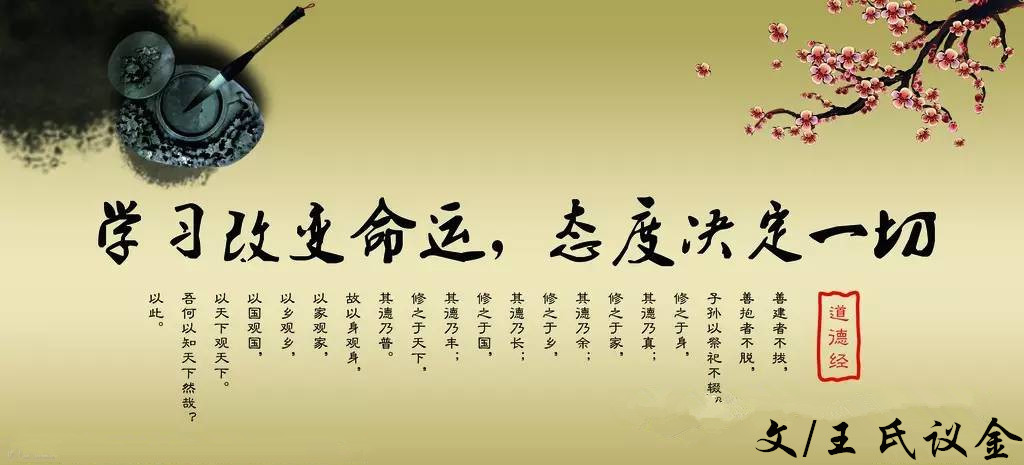 学习改变命运，态度决定一切
道德经
善建者不拔，
善抱者不脱，
子孙以祭祀不辍。
修之于身，
其德乃真；
修之于家，
其德乃余；
修之于乡，
其德乃长；
修之于国，
其德乃丰；
修之于天下，
其德乃普。
故以身观身，
以家观家，
以乡观乡，
以国观国，
以天下观天下。
吾何以知天下然哉？
以此。
文/王氏议金